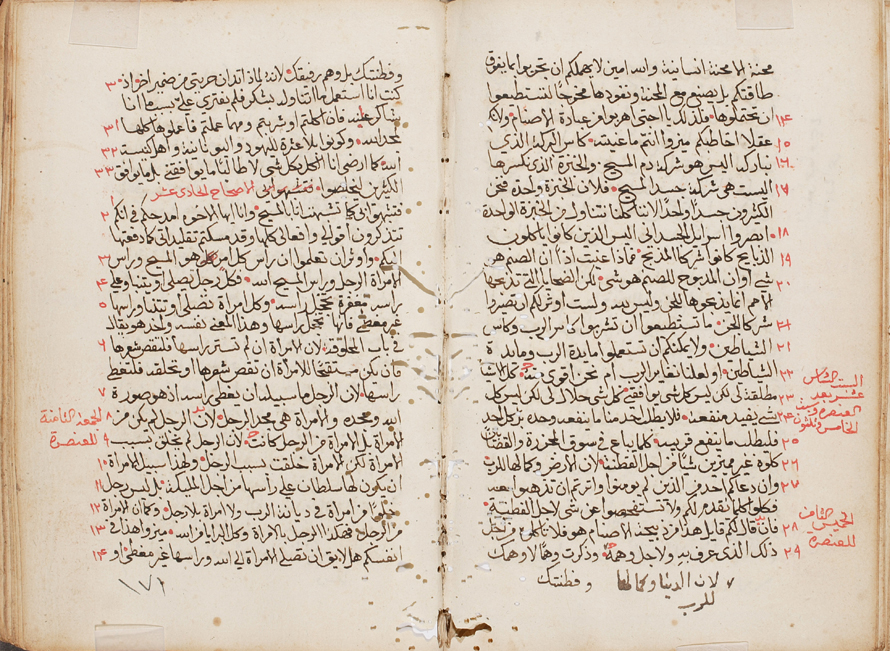 محنة الا محنة انسانية والله امين لا يهملكم ان تجربوا بما يفوق
طاقتكم بل يصنع مع المحنة ونفودها مخرجا لتستطيعوا
ان تحتملوها فلذلك يا احبتي اهربوا من عبادة الاصنام ولانكم ١٤
عقلا اخاطبكم ميزوا انتم ما عنيته كاس البركة الذي ١٥
نباركه اليس هو شركة دم المسيح والخبزة الذي نكسرها ١٦
اليست هي شركة جسد المسيح فلان الخبزة واحدة فنحن ١٧
الكثيرون جسدا واحدا لاننا كلنا نتناول من الخبزة الواحدة
ابصروا اسراييل الجسداني اليس الذين كانوا ياكلون ١٨
الذبايح كانوا شركا المذبح فماذا عنيت اذا ان الصنم هو ١٩
شي او ان المذبوح للصنم هو شي لكن الضحايا التي تذبحها ٢٠
الامم انما يذبحوها للجن وليس لله ولست اوثر لكم ان تصيروا
شركا الجن ما تستطيعوا ان تشربوا كاس الرب وكاس ٢١
الشياطين ولا يمكنكم ان تستعملوا مايدة الرب ومايدة ٢١
الشياطين او لعلنا نغاير الرب ام نحن اقوى منه كل الاشيا ٢٢
مطلقة لي لكن ليس كل شي يوافق كل شي حلال لي لكن ليس كل ٢٣
شي يفيد منفعة فلا يطلب احد منا ما ينفعه وحده بل كل احد ٢٤
فليطلب ما ينفع قريبه كلما يباع في سوق المجزرة والقصابين ٢٥
كلوه غير مميزين شيا من اجل الفطنة لان الارض وكمالها للرب ٢٦
وان دعاكم احد من الذين لم يومنوا واثرتم ان تذهبوا معه ٢٧
فكلوا كلما يقدم لكم ولا تستفحصوا عن شي لاجل الفطنة
فان قال لكم قايل هذا من ذبيحة الاصنام هو فلا تاكلوا من اجل ٢٨
ذلك الذي عرف به ولاجل وهمه وذكرت وهما لا وهمك ٢٩
لان الدنيا وكمالها
للرب
وفطنتك
السبت السادس
عشر بعد
العنصرة وسبت
الخامس وثلثون
الخميس الثامن
للعنصرة
وفطنتك بل وهم رفيقك لانه لماذا تدان حريتي من ضمير اخر واذ ٣٠
كنت انا استعمل ما اتناوله بشكر فلم يفترى علي بسبب ما انا
شاكر عليه فان اكلتم او شربتم ومهما عملتم فاعملوها كلها ٣١
لمجد الله وكونوا بلا عثرة لليهود واليونانية واهل كنيسة ٣٢
الله كما ارضي انا الكل بكل شي لا طالبا ما يوافقني بل ما يوافق ٣٣
الكثيرين ليخلصوا الاصحاح الحادي عشر
فتشبهوا بي كما تشبهت انا بالمسيح وانا ايها الاخوة امدحكم في انكم ٢
تتذكرون اقوالي وافعالي كلها وقد مسكتم تقليداتي كما دفعتها
اليكم واوثر ان تعلموا ان راس كل امر هو المسيح وراس ٣
الامراة الرجل وراس المسيح الله فكل رجل يصلي او يتنبا وعلى ٤
راسه مغفرة يخجل راسه وكل امراة تصلي او تتنبا وراسها ٥
غير مغطى فانها تخجل راسها وهذا المعنى نفسه واحد هو يقال
في باب المحلوقة لان الامراة ان لم تستر راسها فلتقص شعرها ٦
فان يكن مستقبحا للامراة ان تقص شعرها وتحلقه فلتغطي
راسها لان الرجل ما سبيله ان يغطي راسه اذ هو صورة ٧
الله ومجده والامراة هي مجد الرجل لان الرجل لم يكن من ٨
الامراة بل الامراة من الرجل كانت لان الرجل لم يخلق بسبب ٩
الامراة لكن الامراة خلقت بسبب الرجل ولهذا سبيل الامراة ١٠
ان يكون لها سلطان على راسها من اجل المليكة بل ليس رجل ١١
خلوا من امراة في ديانة الرب ولا امراة بلا رجل وكما ان الامراة ١٢
من الرجل هكذا الرجل بالامراة وكل البرايا من الله ميزوا هذا في ١٣
انفسكم هل لايق ان تصلي الامراة الى الله وراسها غير مغطى او ١٤
الجمعة الثامنة
للعنصرة
١٧٢